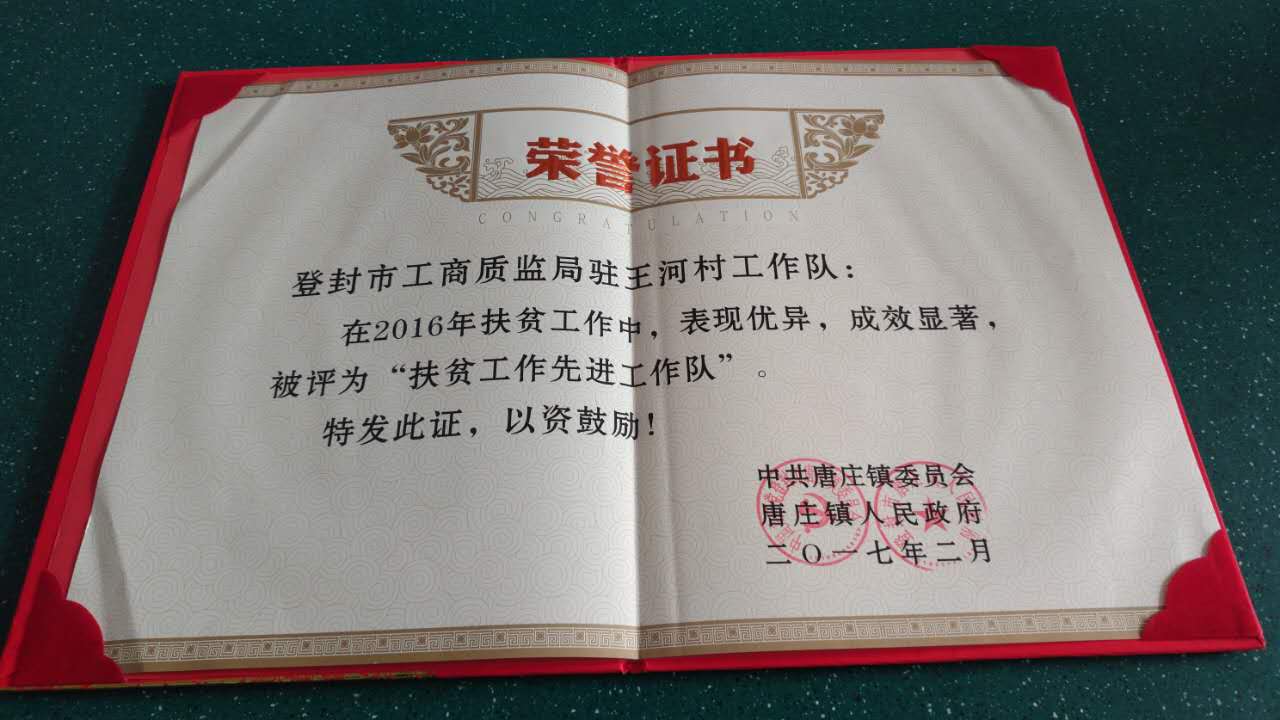 荣誉证书
CONGRATULATION
登封市工商质监局驻王河村工作队：
在2016年扶贫工作中，表现优异，成效显著，
被评为“扶贫工作先进工作队”。
特发此证，以资鼓励！
中共唐庄镇委员会
唐庄镇人民政府
二〇一七年二月